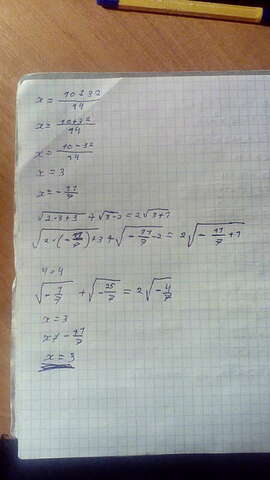 x = (10±32)/14
x = (10+32)/14
x = (10-32)/14
x = 3
x = -11/7
√(2·3+3) + √(3-2) = 2√(3+1)
√(2·(-11/7)+3) + √(-11/7-2) = 2√(-11/7+1)
4=4
√(-1/7) + √(-25/7) = 2√(-4/7)
x = 3
x ≠ -11/7
x = 3